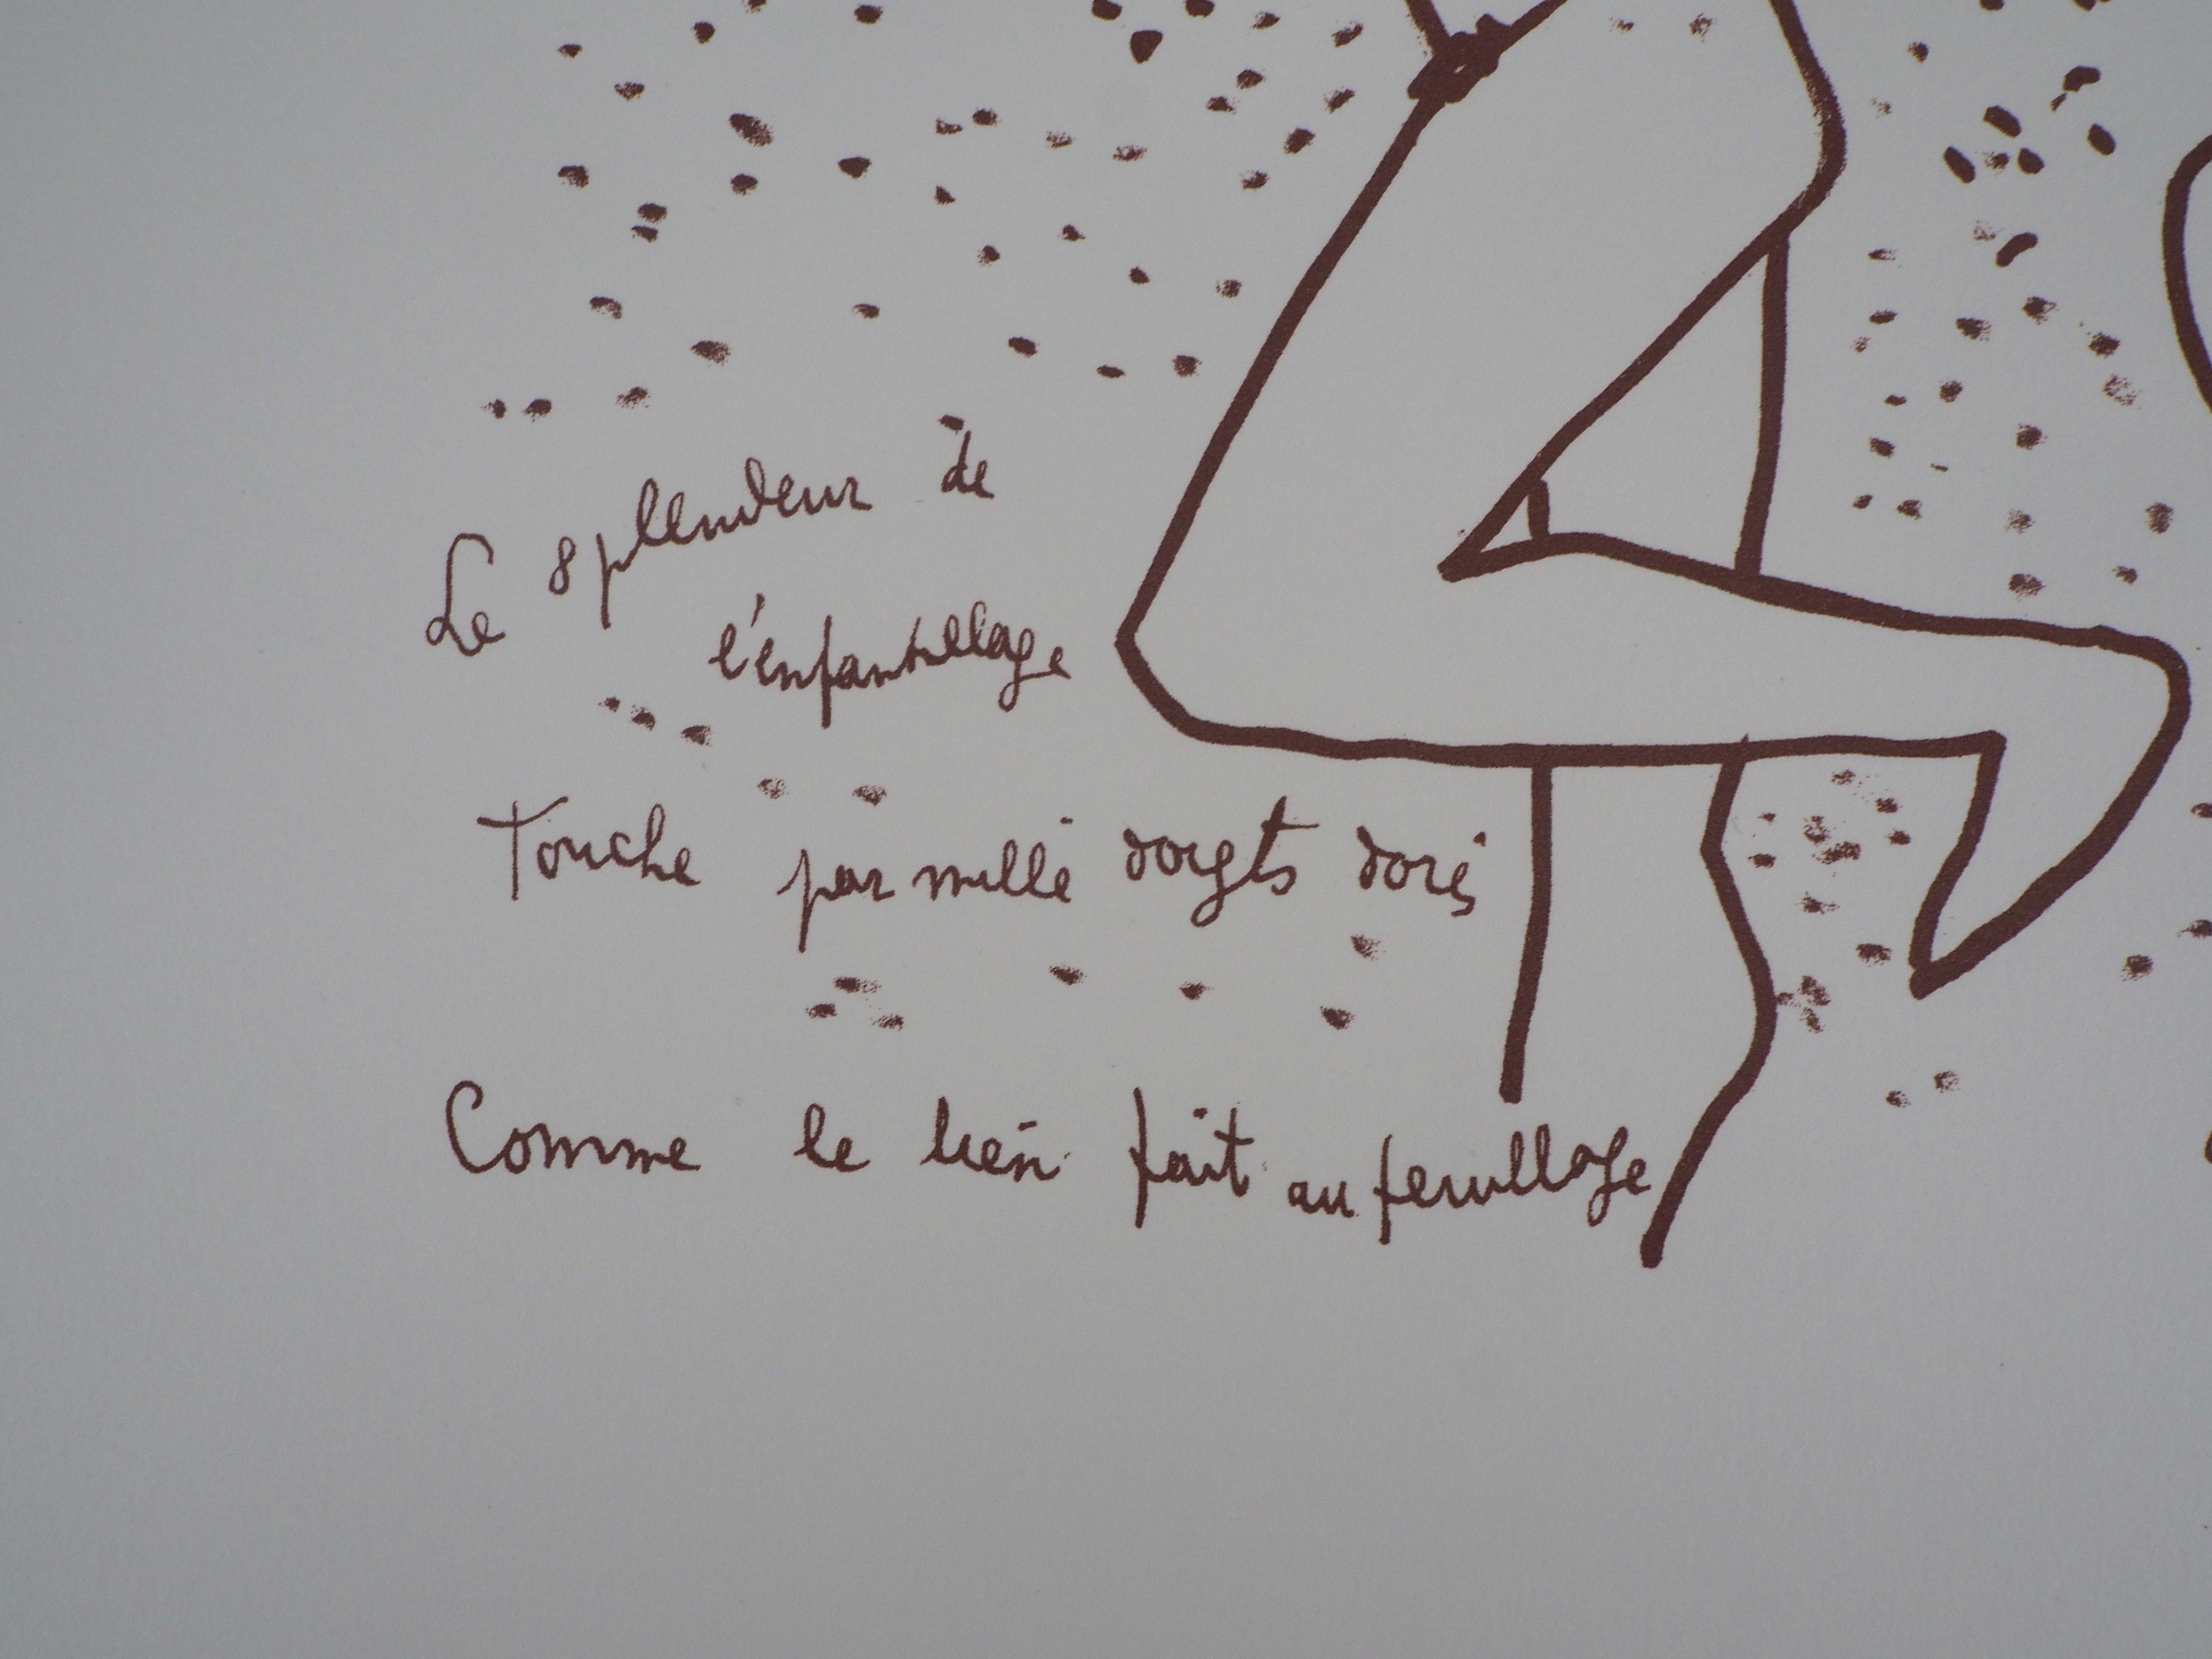 Le splendeur de
l'enfantillage
Touche par mille doigts dorés
Comme le lien fait au feuillage